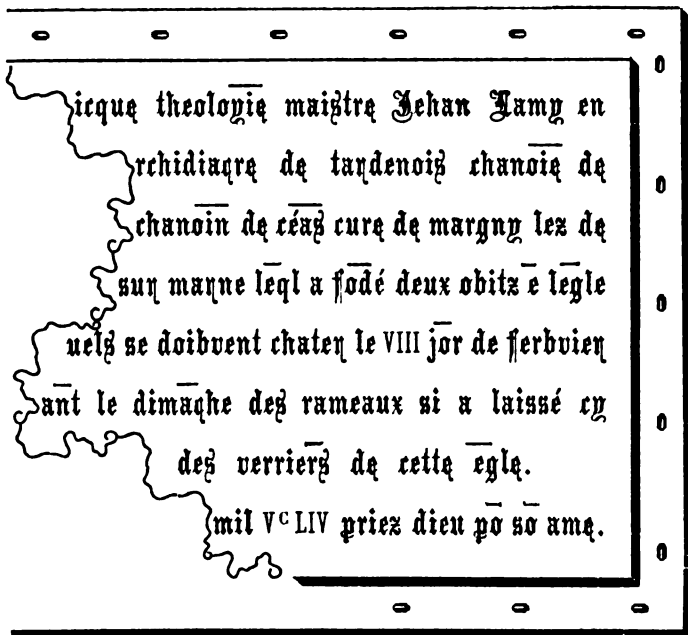 icque theologie maistre Jehan Lamy en
rchidiacre de tardenois chanoie de
chanoin de céas cure de margny lez de
sur marne leql a fodé deux obitz e legle
uels se doibvent chater le VIII jor de ferbvier
ant le dimache des rameaux si a laissé cy
des verriers de cette egle.
mil Vc LIV priez dieu po so ame.